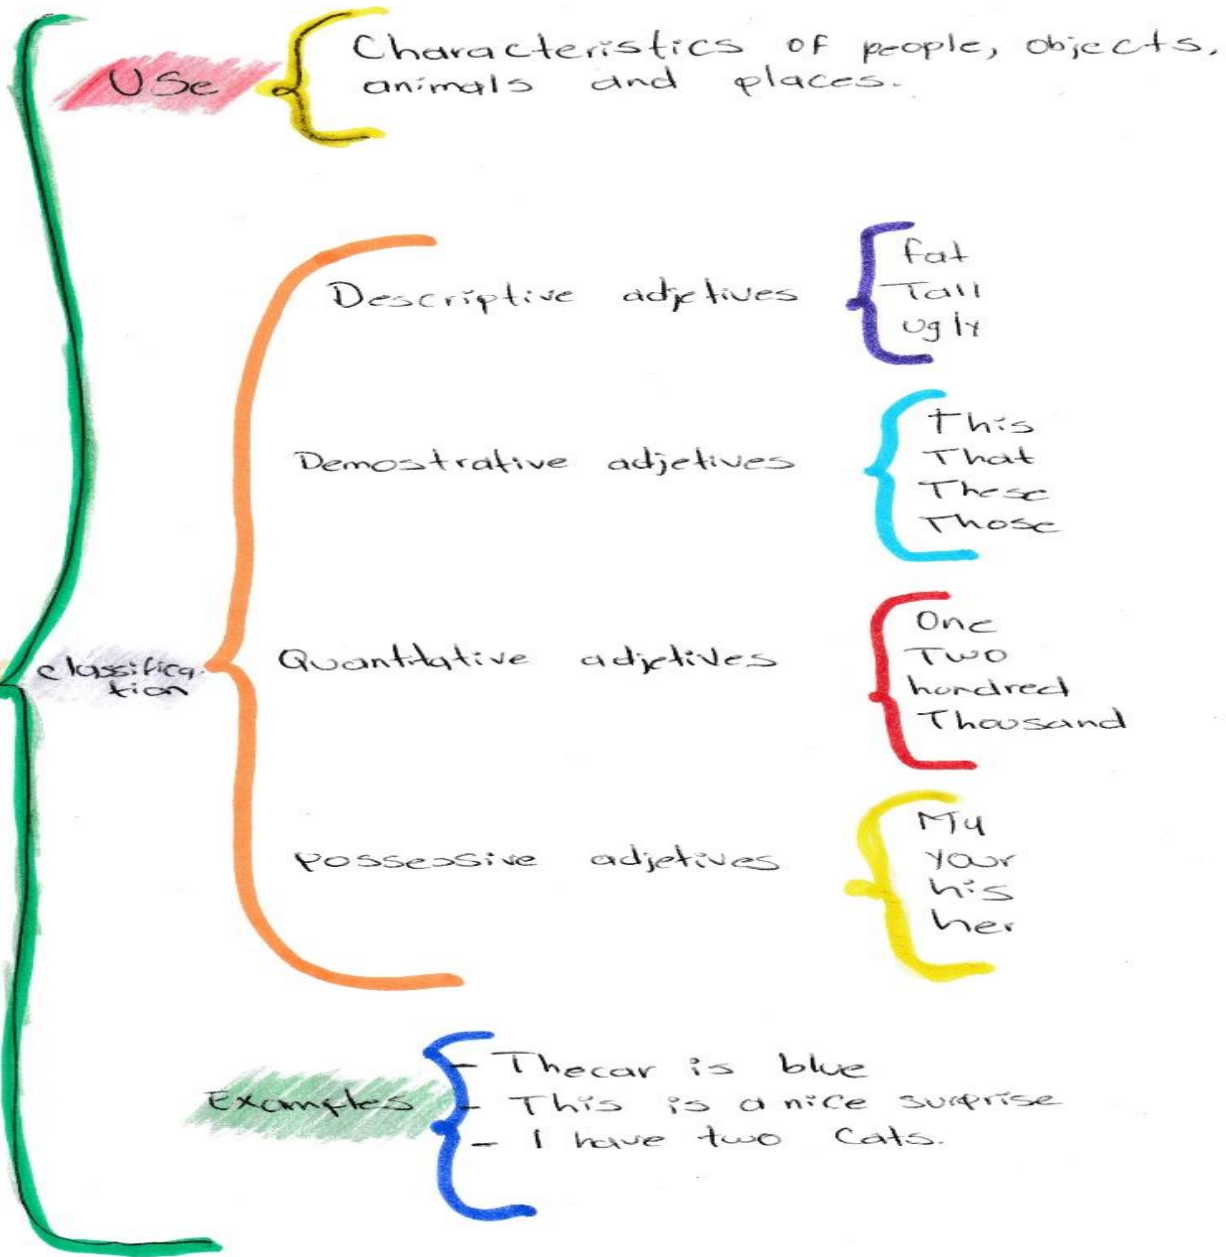 Use
Characteristics of people, objects,
animals and places.
Descriptive adjetives
fat
Tall
ugly
Demostrative adjetives
This
That
These
Those
classifica-
tion
Quantitative adjetives
One
Two
hundred
Thousand
possessive adjetives
My
your
his
her
Examples
- The car is blue
- This is a nice surprise
- I have two cats.